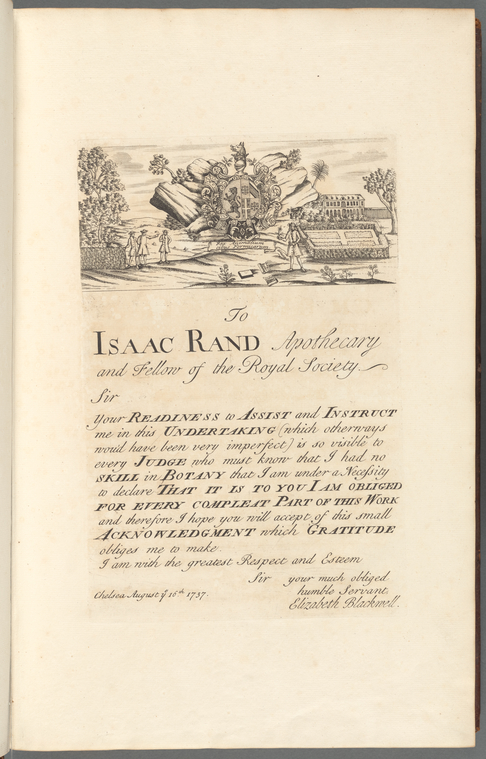 To
ISAAC RAND Apothecary
and Fellow of the Royal Society.
Sir
Your READINESS to ASSIST and INSTRUCT
me in this UNDERTAKING (which otherways
woud have been very imperfect) is so visible to
every JUDGE who must know that I had no
SKILL in BOTANY that I am under a Necessity
to declare THAT IT IS TO YOU I AM OBLIGED
FOR EVERY COMPLEAT PART OF THIS WORK
and therefore I hope you will accept of this small
ACKNOWLEDGMENT which GRATITUDE
obliges me to make.
I am with the greatest Respect and Esteem
Sir your much obliged
humble Servant
Chelsea August yͤ 16th 1737.
Elizabeth Blackwell.